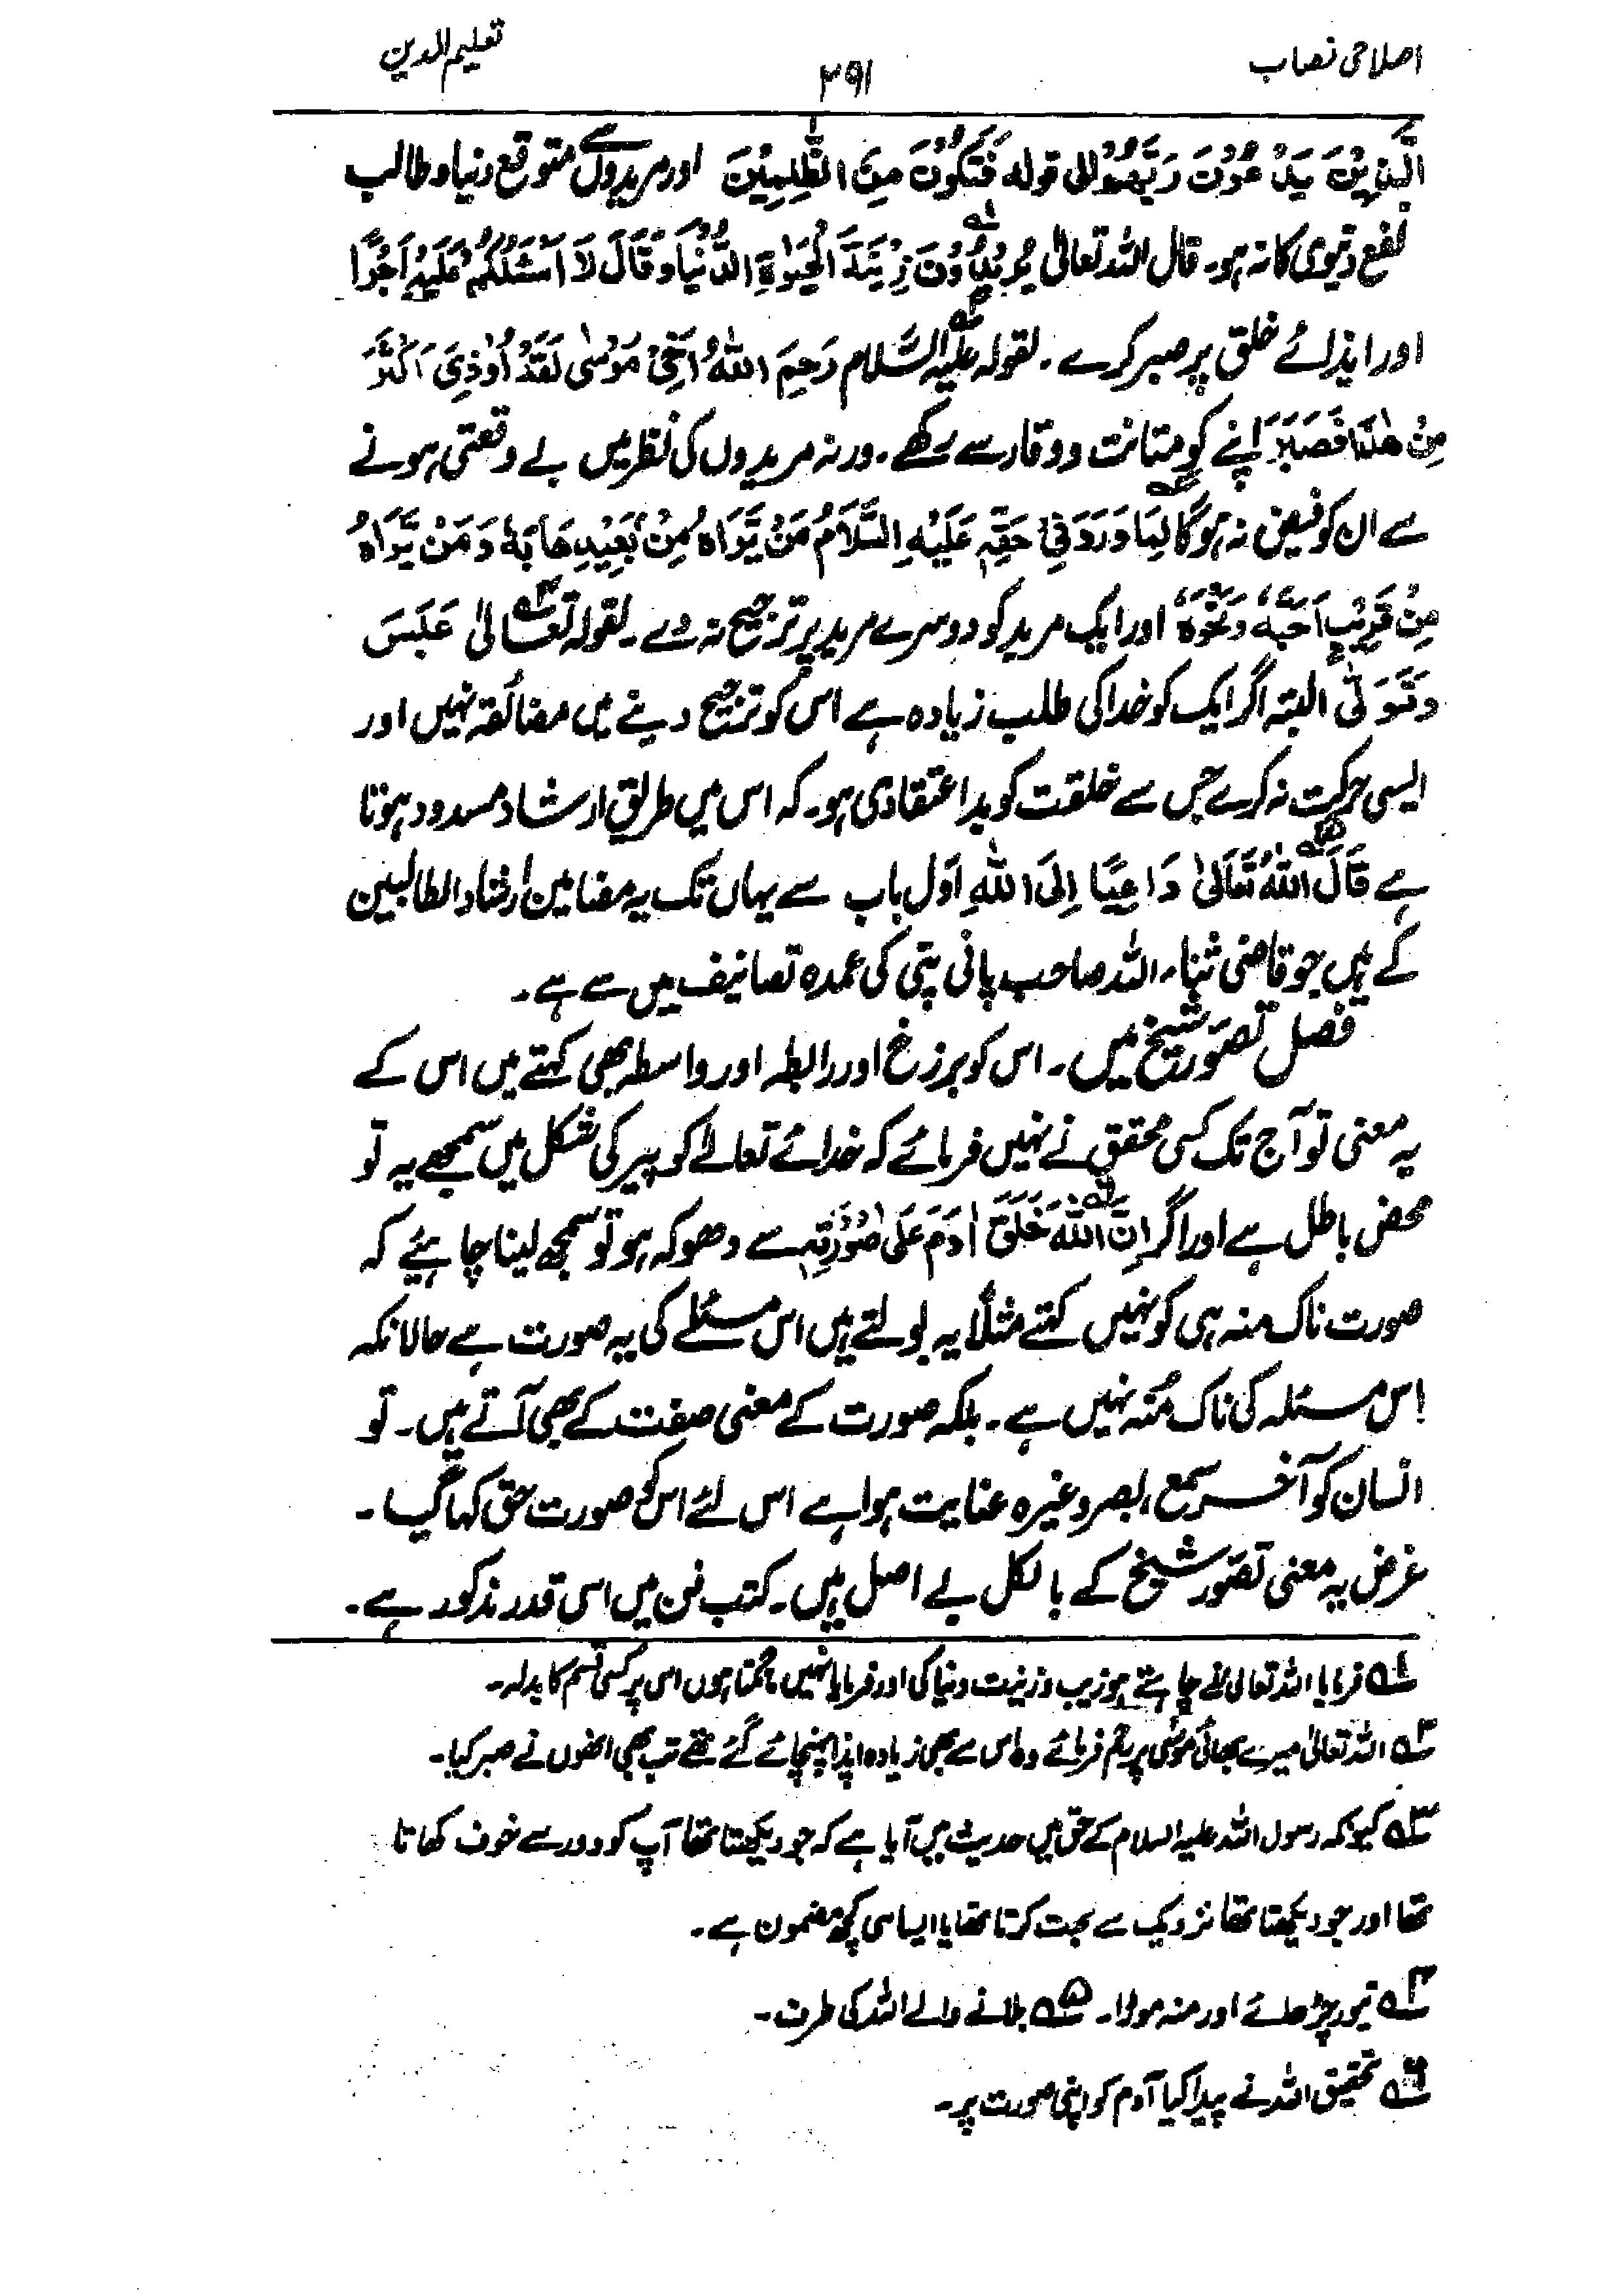 اصلاحی نصاب
۳۹۱
تعلیم الدین
الَّذِیْنَ یَدْعُوْنَ رَبَّھُمْ الی قولہ فَتَکُوْنَ مِنَ الظّٰلِمِیْنَ اور مریدوں سے متوقع دنیا و طالب
نفع دنیوی کا نہ ہو۔ قال اللہ تعالیٰ یُرِیْدُوْنَ زِیْنَۃَ الْحَیٰوۃِ الدُّنْیَا وَقَالَ لَا اَسْئَلُکُمْ عَلَیْہِ اَجْرًا
اور ایذائے خلق پر صبر کرے۔ لقولہ علیہ السَّلام رَحِمَ اللّٰہُ اَخِیْ مُوْسٰی لَقَدْ اُوْذِیَ اَکْثَرَ
مِنْ ھٰذَا فَصَبَرَ اپنے کو متانت و وقار سے رکھے۔ ورنہ مریدوں کی نظر میں بے وقعتی ہونے
سے ان کو فیض نہ ہوگا لِمَا وَرَدَ فِیْ حَقِّہٖ عَلَیْہِ السَّلَامُ مَنْ یَّرَاہُ مِنْ بَعِیْدٍ ھَابَہٗ وَمَنْ یَّرَاہُ
مِنْ قَرِیْبٍ اَحَبَّہٗ وَنَحْوَہٗ اور ایک مرید کو دوسرے مرید پر ترجیح نہ دے۔ لقولہ تعالیٰ عَبَسَ
وَتَوَلّٰی البتہ اگر ایک کو خدا کی طلب زیادہ ہے اس کو ترجیح دینے میں مضائقہ نہیں اور
ایسی حرکت نہ کرے جس سے خلقت کو بداعتقادی ہو۔ کہ اس میں طریق ارشاد مسدود ہوتا
ہے قَالَ اللّٰہُ تَعَالیٰ دَاعِیًا اِلَی اللّٰہِ اوّل باب سے یہاں تک یہ مضامین ارشاد الطالبین
کے ہیں جو قاضی ثناء اللہ صاحب پانی پتی کی عمدہ تصانیف میں سے ہے۔
فصل تصوّر شیخ میں۔ اس کو برزخ اور رابطہ اور واسطہ بھی کہتے ہیں اس کے
یہ معنی تو آج تک کسی محقق نے نہیں فرمائے کہ خدائے تعالےٰ کو پیر کی شکل میں سمجھے یہ تو
محض باطل ہے اور اگر اِنَّ اللّٰہَ خَلَقَ اٰدَمَ عَلٰی صُوْرَتِہٖ سے دھوکہ ہو تو سمجھ لینا چاہیئے کہ
صورت ناک منہ ہی کو نہیں کہتے مثلاً یہ بولتے ہیں اس مسئلے کی یہ صورت ہے حالانکہ
اِس مسئلہ کی ناک مُنہ نہیں ہے۔ بلکہ صورت کے معنی صفت کے بھی آتے ہیں۔ تو
انسان کو آخر سمع، بصر وغیرہ عنایت ہوا ہے اس لئے اس کو صورت حق کہا گیا۔
غرض یہ معنی تصوّر شیخ کے بالکل بے اصل ہیں۔ کتب فن میں اسی قدر مذکور ہے۔
۱؎ فرمایا اللہ تعالیٰ نے چاہتے ہو زیب و زینت دنیا کی اور فرمایا نہیں مانگتا ہوں اس پر کسی قسم کا بدلہ۔
۲؎ اللہ تعالیٰ میرے بھائی موسیٰ پر رحم فرمائے وہ اس سے بھی زیادہ ایذا پہنچائے گئے تھے تب بھی انھوں نے صبر کیا۔
۳؎ کیونکہ رسول اللہ علیہ السلام کے حق میں حدیث میں آیا ہے کہ جو دیکھتا تھا آپ کو دور سے خوف کھاتا
تھا اور جو دیکھتا تھا نزدیک سے محبت کرتا تھا یا ایسا ہی کچھ مضمون ہے۔
۴؎ تیور چڑھائے اور منہ موڑا۔ ۵؎ بلانے والے اللہ کی طرف۔
۶؎ تحقیق اللہ نے پیدا کیا آدم کو اپنی صورت پر۔